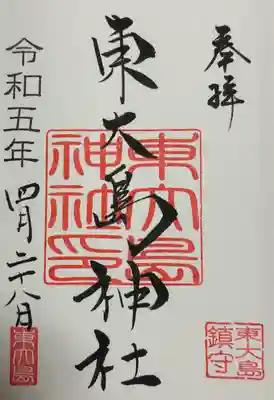 奉拝
東大島神社
東大島神社印
令和五年 四月二十八日
東大島鎮守
東大島